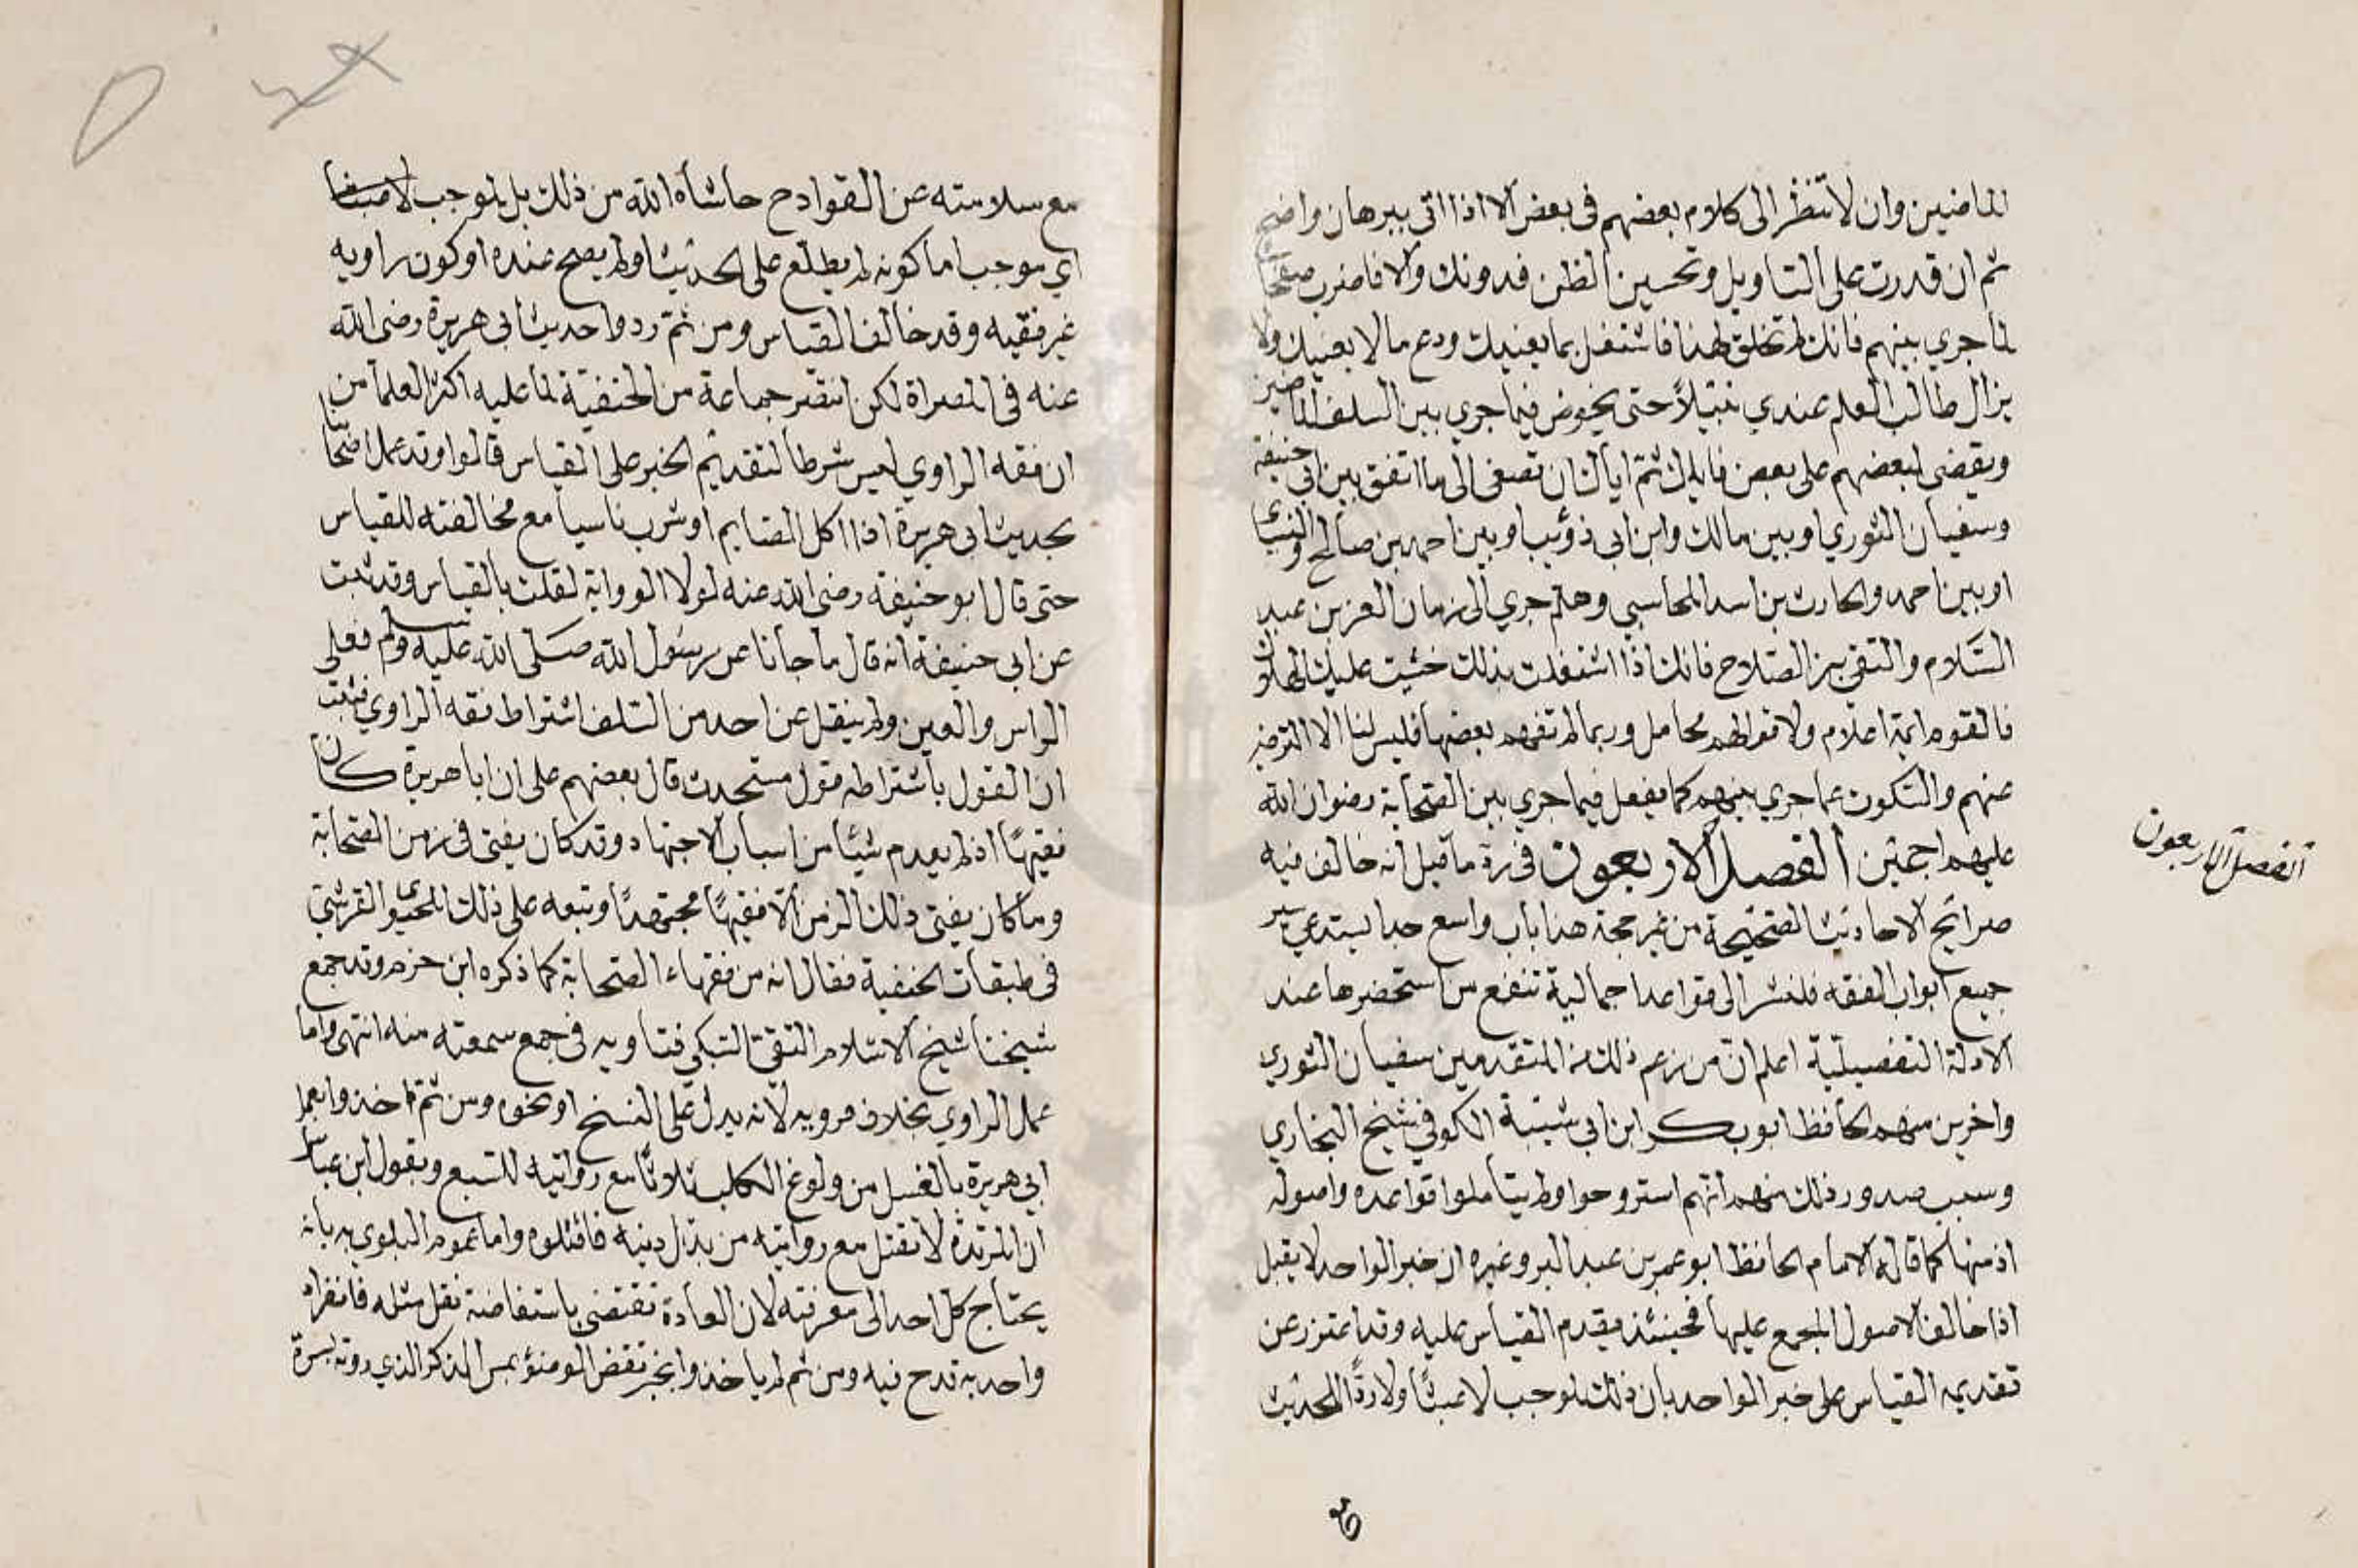 الماضين وان لا تنظر الى كلام بعضهم فى بعض الا اذا اتى ببرهان واضح
ثم ان قدرت على التاويل وتحسين الظن فدونك والا فاضرب صفحا
لما جري بينهم فانك لم تخلق لهذا فاشتغل بما يعنيك ودع ما لا يعنيك ولا
يزال طالب العلم عندي نبيلاً حتى يخوض فيما جري بين السلف الماضين
ويقضى لبعضهم على بعض فاياك ثم اياك ان تصغى الى ما اتفق بين ابى حنيفة
وسفيان الثوري او بين مالك وابن ابى ذؤيب او بين احمد بن صالح والنسائى
او بين احمد والحارث بن اسد المحاسبي وهلم جري الى زمان العز بن عبد
السلام والتقى بن الصلاح فانك اذا اشتغلت بذلك خشيت عليك الهلاك
فالقوم ايمة اعلام ولاقوالهم محامل وربما لم تفهم بعضها فليس لنا الا الترضي
عنهم والسكوت عما جري بينهم كما يفعل فيما جري بين الصحابة رضوان الله
عليهم اجمعين الفصل الاربعون فى رد ما قيل انه خالف فيه
صرايح الاحاديث الصحيحة من غير حجة هذا باب واسع جدا يستدعي سير
جميع ابواب الفقه فلنشر الى قواعد اجمالية تنفع من استحضرها عند
الادلة التفصيلية اعلم ان من زعم ذلك من المتقدمين سفيان الثوري
واخرين منهم الحافظ ابو بكر ابن ابي شيبة الكوفي شيخ البخاري
وسبب صدور ذلك منهم انهم استروحوا ولم يتأملوا قواعده واصوله
اذ منها كما قاله الامام الحافظ ابو عمر بن عبد البر وغيره ان خبر الواحد لا يقبل
اذا خالف الاصول المجمع عليها فحينئذ يقدم القياس عليه وقد اعتذر عن
تقديمه القياس على خبر الواحد بان ذلك لموجب لا عبثًا ولا ردًا للحديث
الفصل الاربعون
مع سلامته عن القوادح حاشاه الله من ذلك بل لموجب
اي موجب اما كونه لم يطلع على الحديث او لم يصح عنده او كون راويه
غير فقيه وقد خالف القياس ومن ثم ردوا حديث ابى هريرة رضى الله
عنه فى المصراة لكن انتصر جماعة من الحنفية لما عليه اكثر العلما من
ان فقه الراوي ليس شرطا لتقديم الخبر على القياس قالوا وقد عمل اصحابنا
بحديث ابى هريرة اذا اكل الصايم او شرب ناسيا مع مخالفته للقياس
حتى قال ابو حنيفة رضى الله عنه لولا الرواية لقلت بالقياس وقد ثبت
عن ابى حنيفة انه قال ما جانا عن رسول الله صلى الله عليه وسلم فعلى
الراس والعين ولم ينقل عن احد من السلف اشتراط فقه الراوي فثبت
ان القول باشتراطه قول مستحدث قال بعضهم على ان ابا هريرة كان
فقيهًا اذ لم يعدم شيئا من اسباب الاجتهاد وقد كان يفتى فى زمن الصحابة
وما كان يفتى ذلك الزمن الا فقيهًا مجتهدًا وتبعه على ذلك المحيوى القرشي
فى طبقات الحنفية فقال انه من فقهاء الصحابة كما ذكره ابن حزم وقد جمع
شيخنا شيخ الاسلام التقى السبكي فتاويه فى جمع سمعته منه انتهى واما
عمل الراوي بخلاف مرويه لانه يدل على النسخ او نحوه ومن ثم اخذوا بعمل
ابي هريرة بالغسل من ولوغ الكلب ثلاثا مع روايته للسبع وبقول ابن عباس
ان المرتدة لا تقتل مع روايته من بدل دينه فاقتلوه واما عموم البلوي به بان
يحتاج كل احد الى معرفته لان العادة تقتضى باستفاضة نقل مثله فانفراد
واحد به قدح فيه ومن ثم لم ياخذوا بخبر نقض الوضوء بمس الذكر الذي روته بسرة